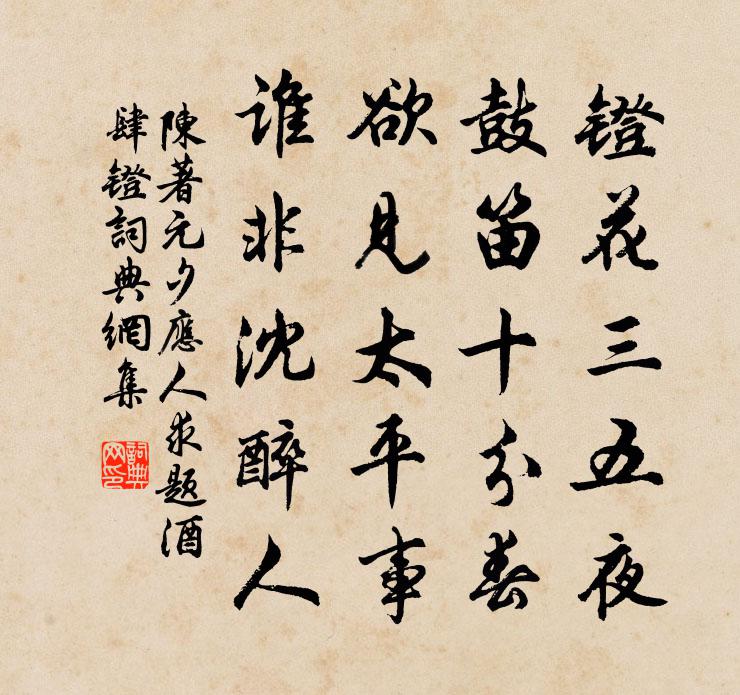 鐙花三五夜
鼓笛十分春
欲見太平事
谁非沈醉人
陳著元夕應人求题酒
肆鐙詞典網集
詞典网印